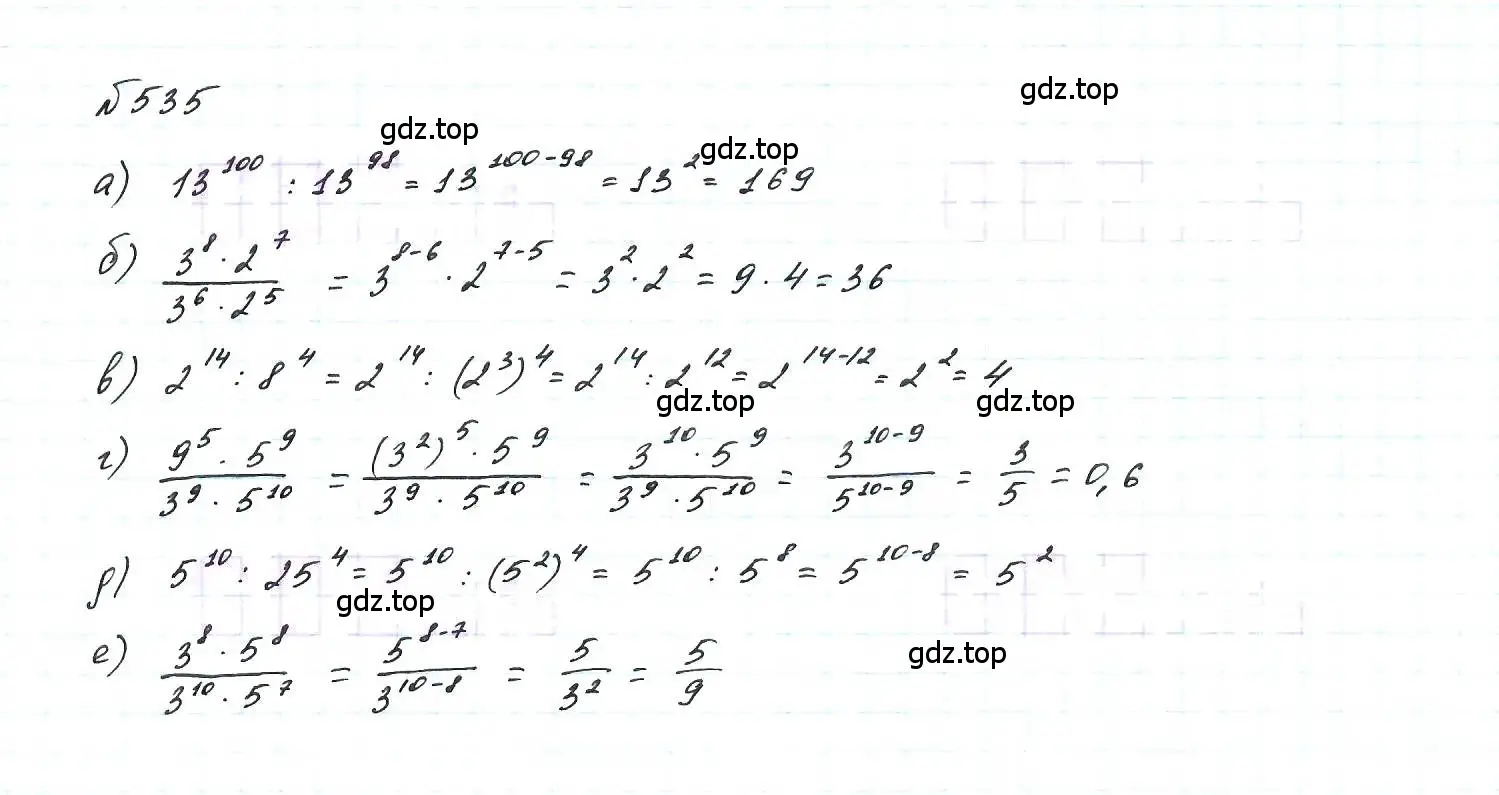 №535
gdz.top
gdz.top
gdz.top
а) 13^100 : 13^98 = 13^(100-98) = 13^2 = 169
б) (3^8 · 2^7)/(3^6 · 2^5) = 3^(8-6) · 2^(7-5) = 3^2 · 2^2 = 9 · 4 = 36
в) 2^14 : 8^4 = 2^14 : (2^3)^4 = 2^14 : 2^12 = 2^(14-12) = 2^2 = 4
gdz.top
gdz.top
г) (9^5 · 5^9)/(3^9 · 5^10) = ((3^2)^5 · 5^9)/(3^9 · 5^10) = (3^10 · 5^9)/(3^9 · 5^10) = 3^(10-9)/5^(10-9) = 3/5 = 0,6
д) 5^10 : 25^4 = 5^10 : (5^2)^4 = 5^10 : 5^8 = 5^(10-8) = 5^2
gdz.top
е) (3^8 · 5^8)/(3^10 · 5^7) = 5^(8-7)/3^(10-8) = 5/3^2 = 5/9
gdz.top